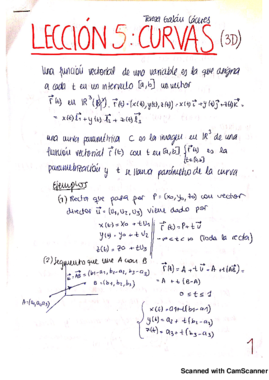 Teresa Galán Cáceres
LECCIÓN 5: CURVAS (3D)
Una función vectorial de una variable es la que asigna
a cada t en un intervalo [a,b] un vector
r⃗(t) en ℝ³ r⃗(t) = (x(t), y(t), z(t)) = x(t)i⃗ + y(t)j⃗ + z(t)k⃗ =
una curva paramétrica C es la imagen en ℝ³ de una
función vectorial r⃗(t) con t en [a,b] { r⃗(t) es la
t∈[a,b]
parametrización y t se llama parámetro de la curva
Ejemplos
(1) Recta que pasa por P = (x₀, y₀, z₀) con vector
director u⃗ = (u₁, u₂, u₃) viene dado por
x(t) = x₀ + t u₁
y(t) = y₀ + t u₂
z(t) = z₀ + t u₃
r⃗(t) = P + t u⃗
-∞ < t < ∞ (toda la recta)
(2) Segmento que une A con B
u⃗ = AB⃗ = (b₁-a₁, b₂-a₂, b₃-a₃)
B = (b₁, b₂, b₃)
A = (a₁, a₂, a₃)
r⃗(t) = A + t u⃗ = A + t(AB⃗) =
= A + t(B-A)
0 ≤ t ≤ 1
x(t) = a₁ + t(b₁-a₁)
y(t) = a₂ + t(b₂-a₂)
z(t) = a₃ + t(b₃-a₃)
1
Scanned with CamScanner